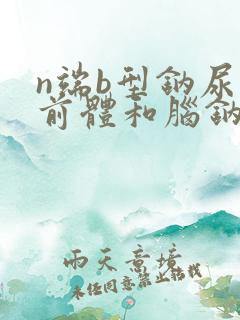 n端b型鈉尿
前體和腦鈉
雨天意境
未经同意禁止转载